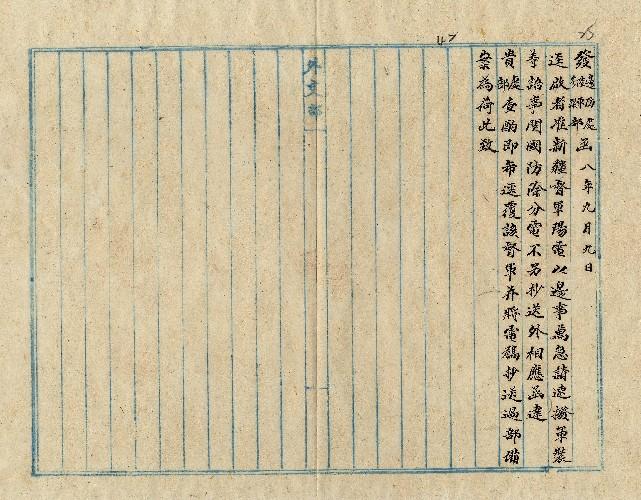 發邊防處陸軍部函 八年九月九日
逕啟者准新疆督軍陽電以邊事萬急請速撥軍裝
等語事関國防除分電不另抄送外相應函達
貴處部查酌即希逕覆該督軍并將電稿抄送過部備
案為荷此致
外交部
47